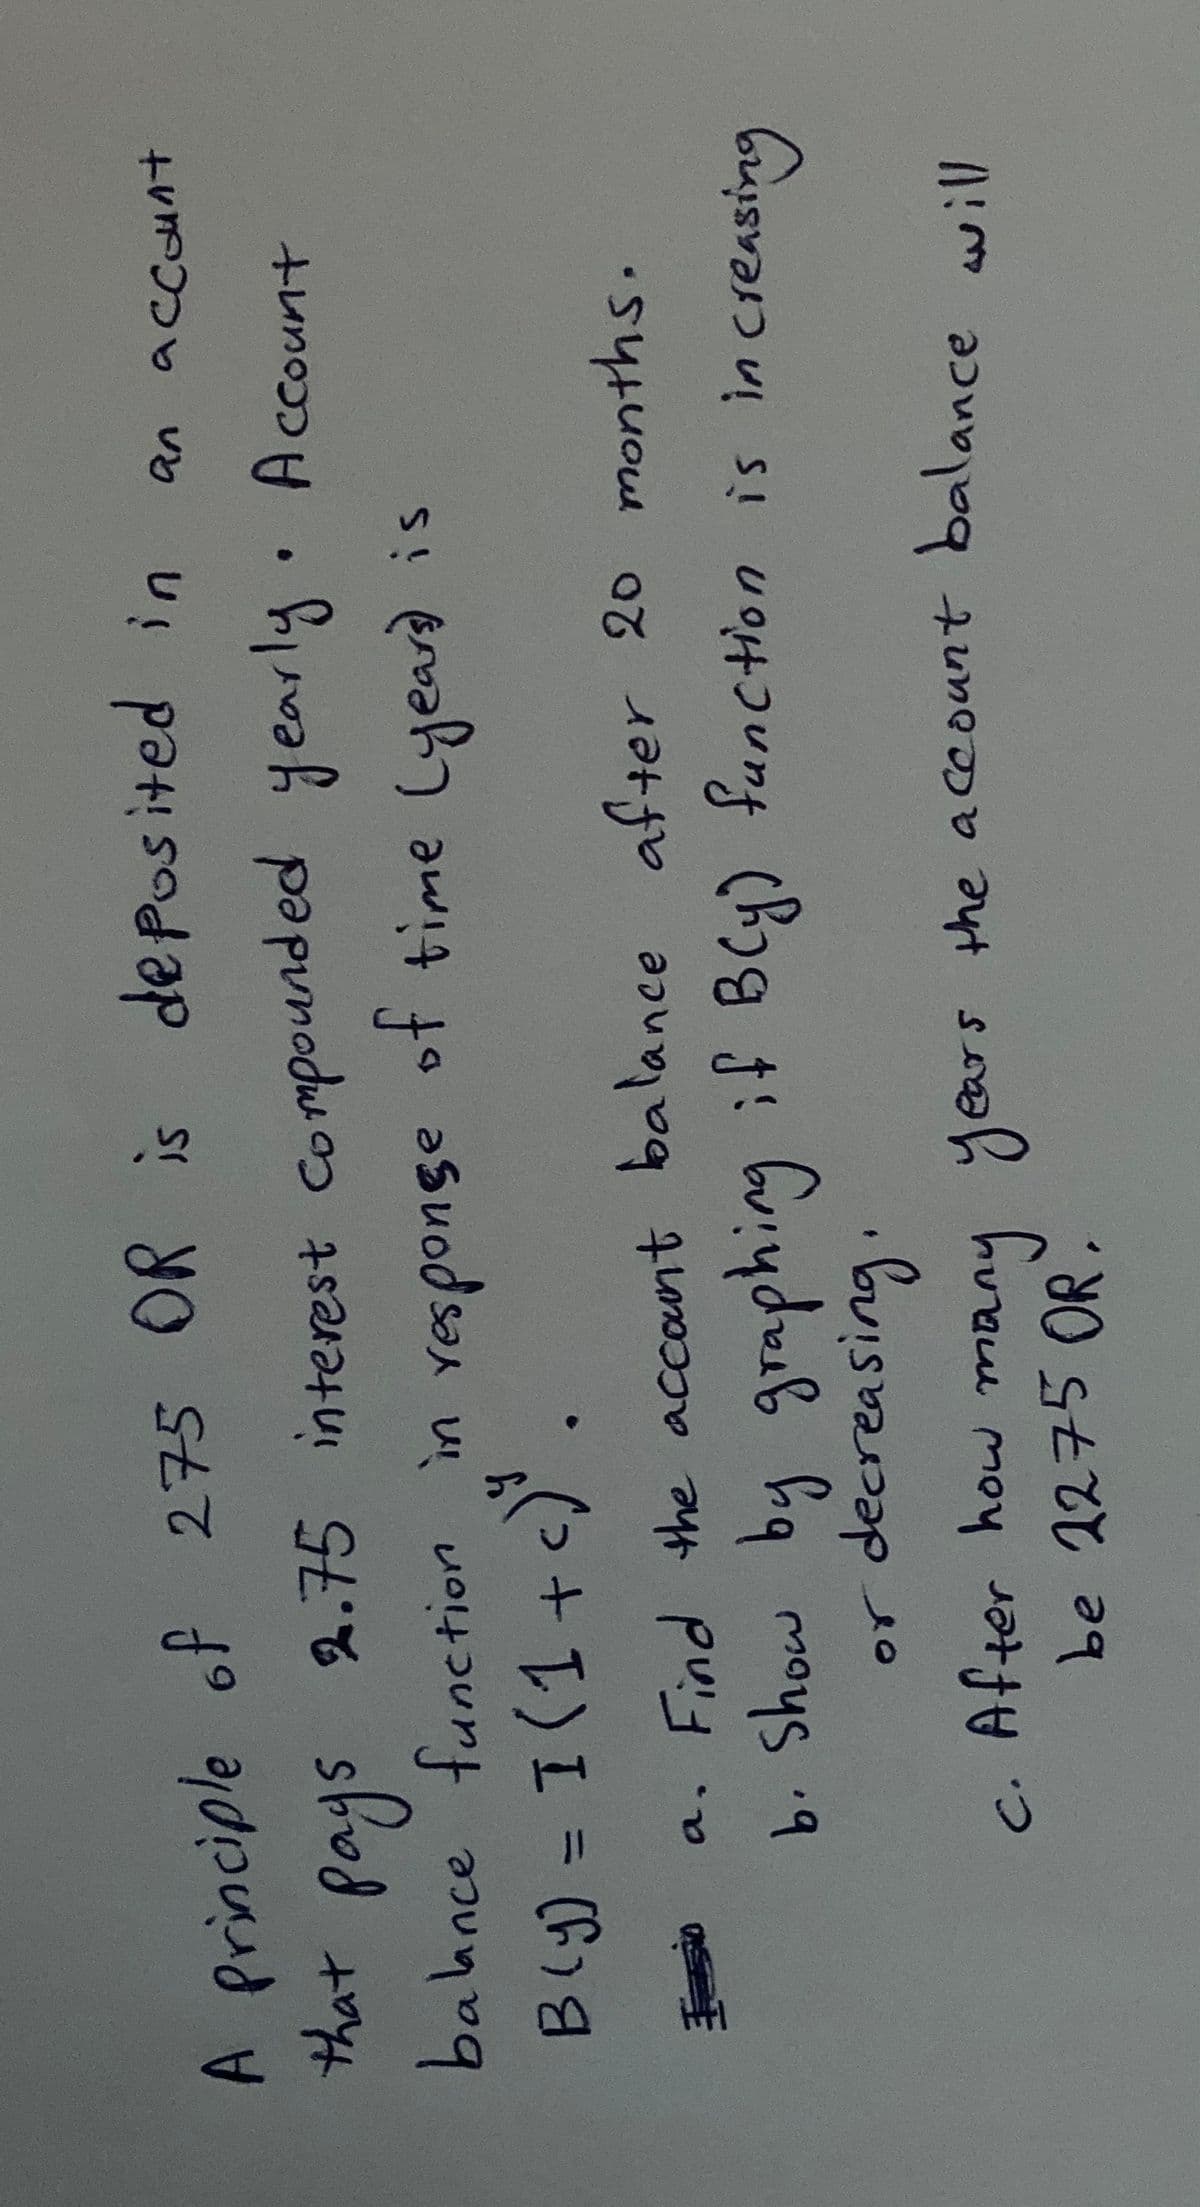 A principle of 275 OR is deposited in an account
that pays 2.75 interest compounded yearly. Account
balance function in response of time (years) is
B(y) = I(1+c)^y.
a. Find the account balance after 20 months.
b. Show by graphing if B(y) function is increasing
or decreasing.
c. After how many years the account balance will
be 2275 OR.